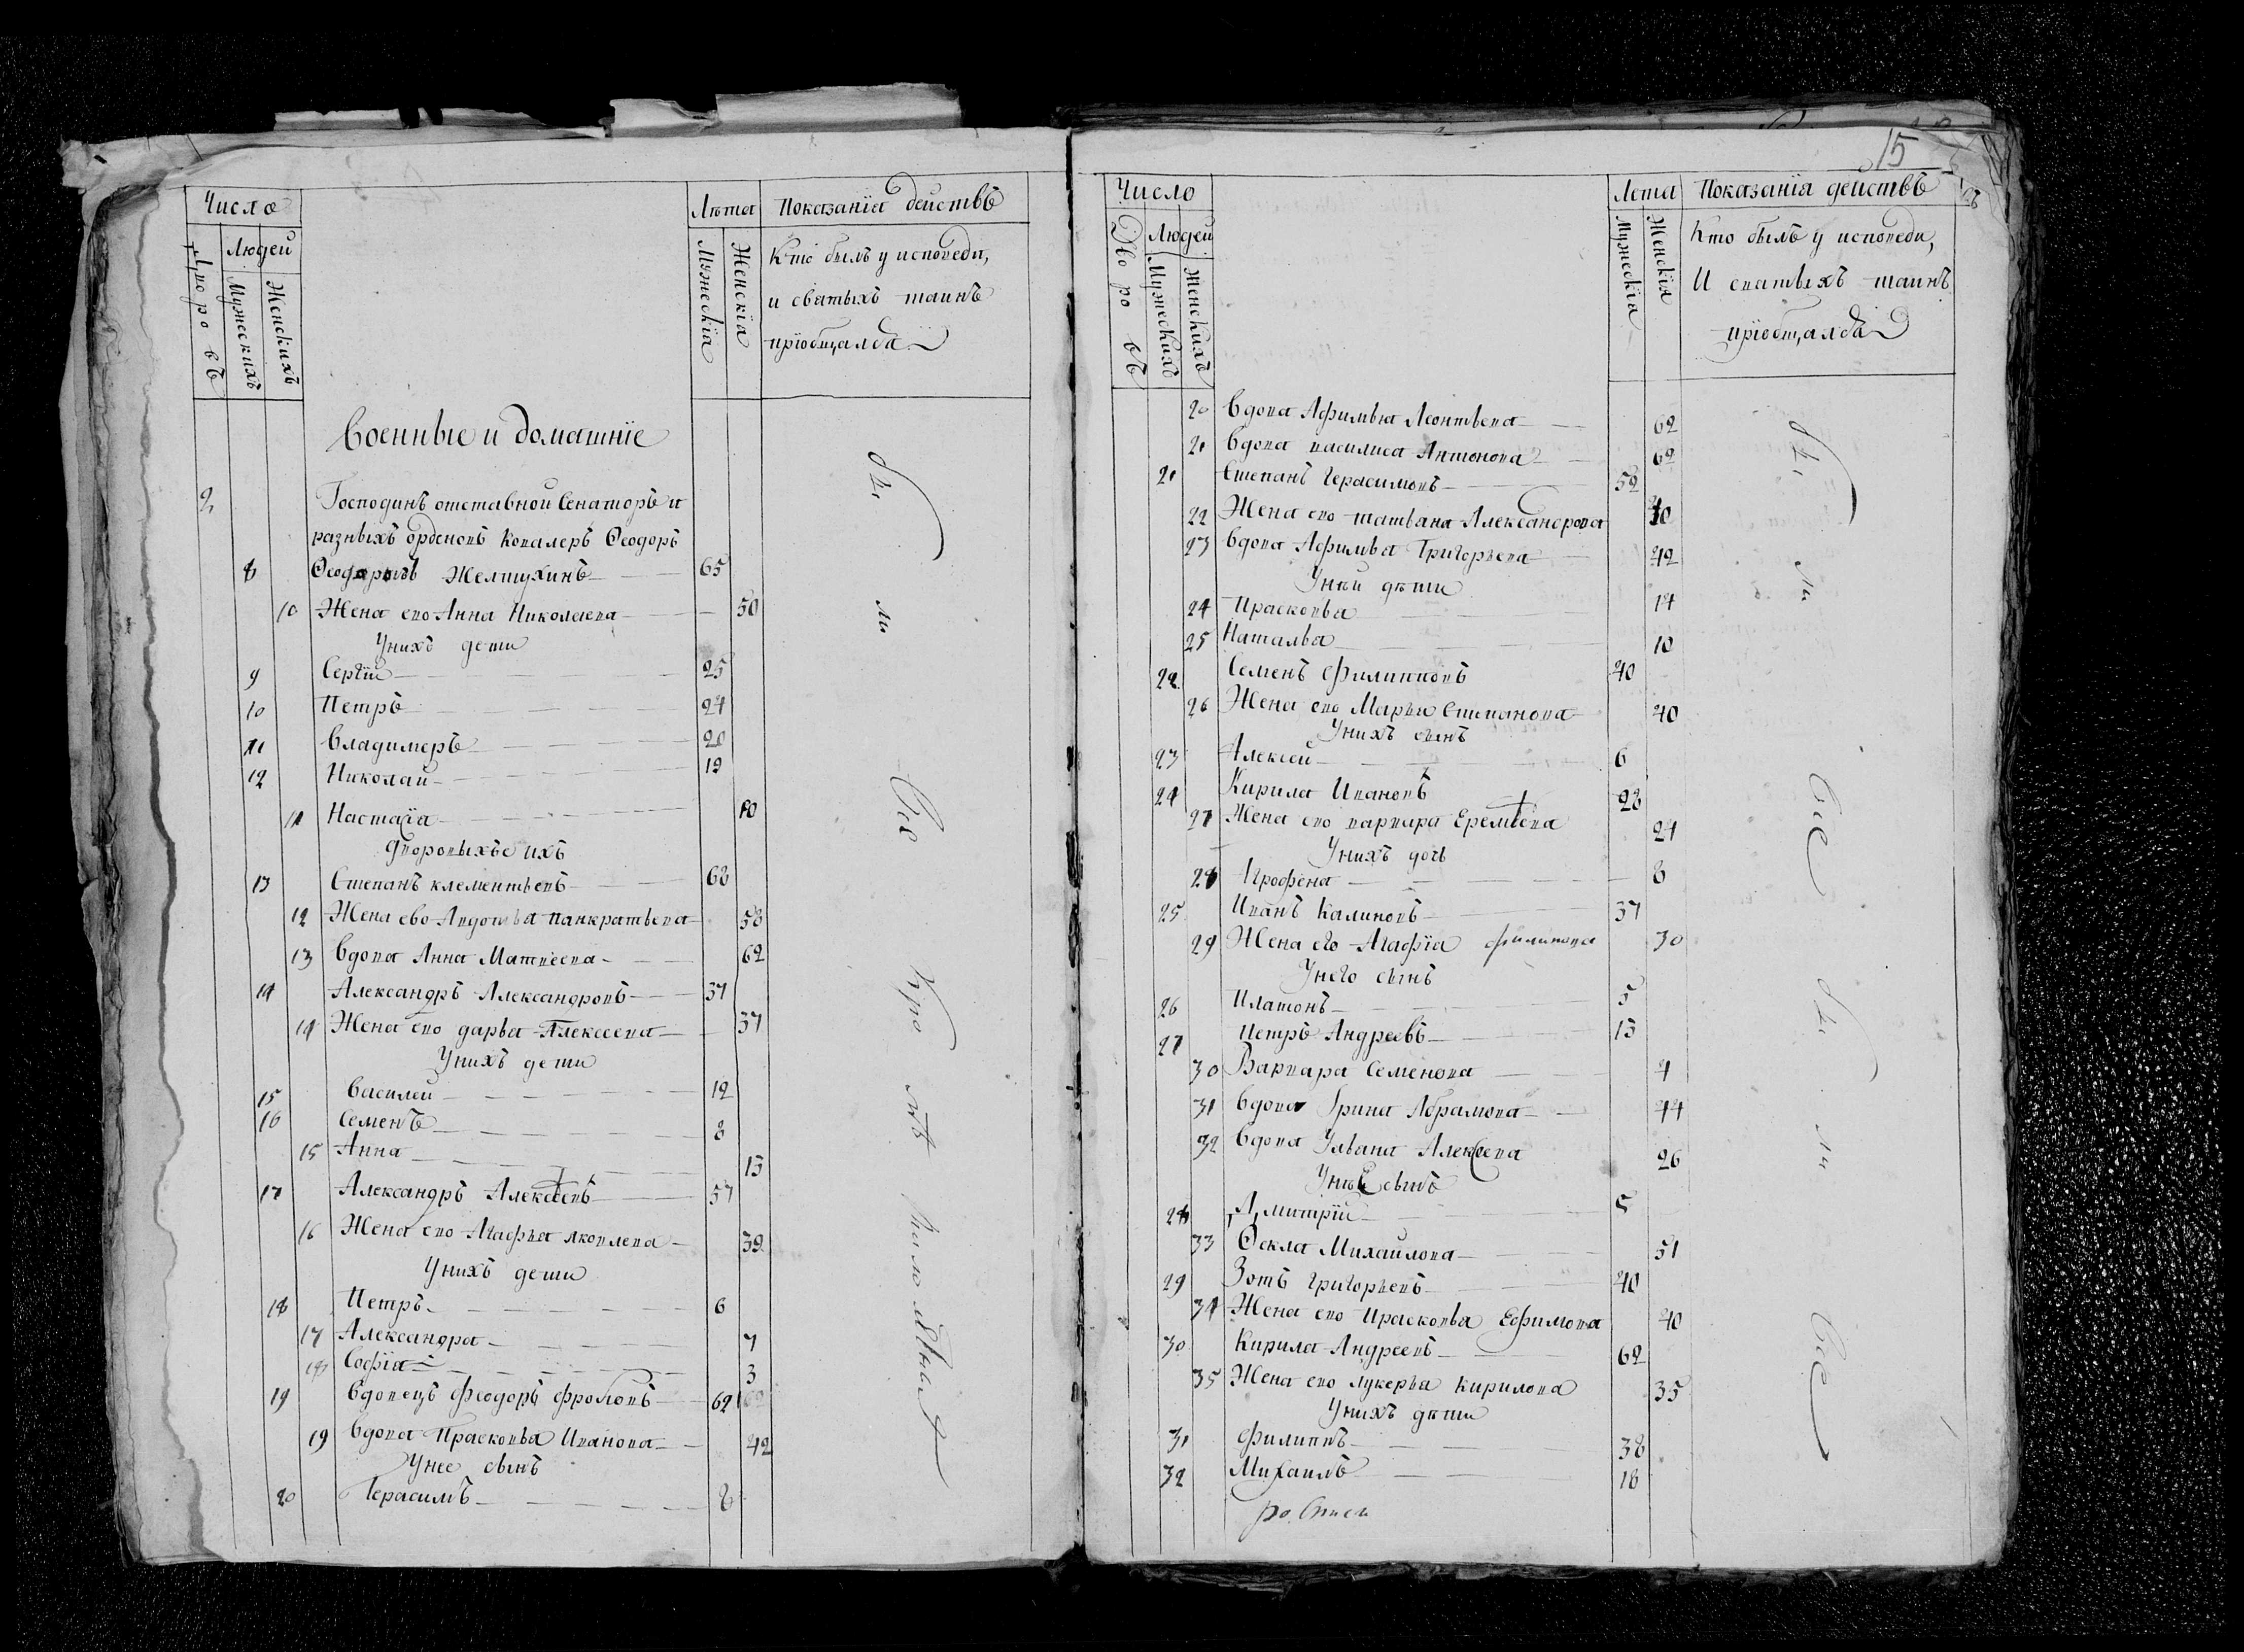 Число
Людей
Дворовъ
Мужескихъ
Женскихъ
Лѣта
Мужескїа
Женскїа
Показанїа действъ
Кто былъ у исповеди,
и святыхъ таинъ
прїобщалса
Военные и домашнїе
2 Господинъ отставной Сенаторъ и
разныхъ орденовъ Кавалеръ Ѳеодоръ
8 Ѳеодоровъ Желтухинъ 65
10 Жена ево Анна Николаевна 50
У нихъ дети
9 Сергїй 25
10 Петръ 24
11 Владимеръ 20
12 Николай 19
11 Настасїа 10
Дворовыхъ ихъ
13 Степанъ Клементьевъ 68
12 Жена ево Авдотья Панкратьева 58
13 Вдова Анна Матвеева 62
14 Александръ Александровъ 37
14 Жена ево Дарья Алексеева 37
У нихъ дети
15 Василей 12
16 Семенъ 8
15 Анна 13
17 Александръ Алексеевъ 57
16 Жена ево Агафья Яковлева 39
У нихъ дети
18 Петръ 6
17 Александра 7
18 Софїа 3
19 Вдовецъ Феодоръ Фроловъ 62
19 Вдова Прасковья Иванова 42
У нее сынъ
20 Герасимъ 8
бы
ли
Все
15
Число
Дворовъ
Людей
Мужескихъ
Женскихъ
Лета
Мужескїа
Женскїя
Показанїя действъ
Кто былъ у исповеди,
И святыхъ таинъ
прїобщалса
20 Вдова Афимья Леонтьева 62
21 Вдова Василиса Антонова 62
21 Степанъ Герасимовъ 52
22 Жена ево Татьяна Александрова
23 Вдова Афимья Григорьева 42
У ней дѣти
24 Прасковья 14
25 Наталья 10
22 Семенъ Филипповъ 40
26 Жена ево Марья Степанова 40
У нихъ сынъ
23 Алексей 6
24 Кирила Ивановъ 28
27 Жена ево Варвара Еремѣева 24
У нихъ дочь
28 Агрофена 8
25 Иванъ Калиновъ 37
29 Жена его Агафїа Филипова 30
У него сынъ
26 Платонъ 5
27 Петръ Андреевъ 13
30 Варвара Семенова 4
31 Вдова Ирина Абрамова 44
32 Вдова Ульяна Алексеева 26
У нее сынъ
28 Дмитрїй 5
33 Ѳекла Михайлова 51
29 Зотъ Григорьевъ 40
34 Жена ево Прасковья Ефимова 40
30 Кирила Андреевъ 62
35 Жена ево Лукерья Кирилова 35
У нихъ дѣти
31 Филиппъ 38
32 Михаилъ 18
росписи
бы
ли
все
бы
ли
все